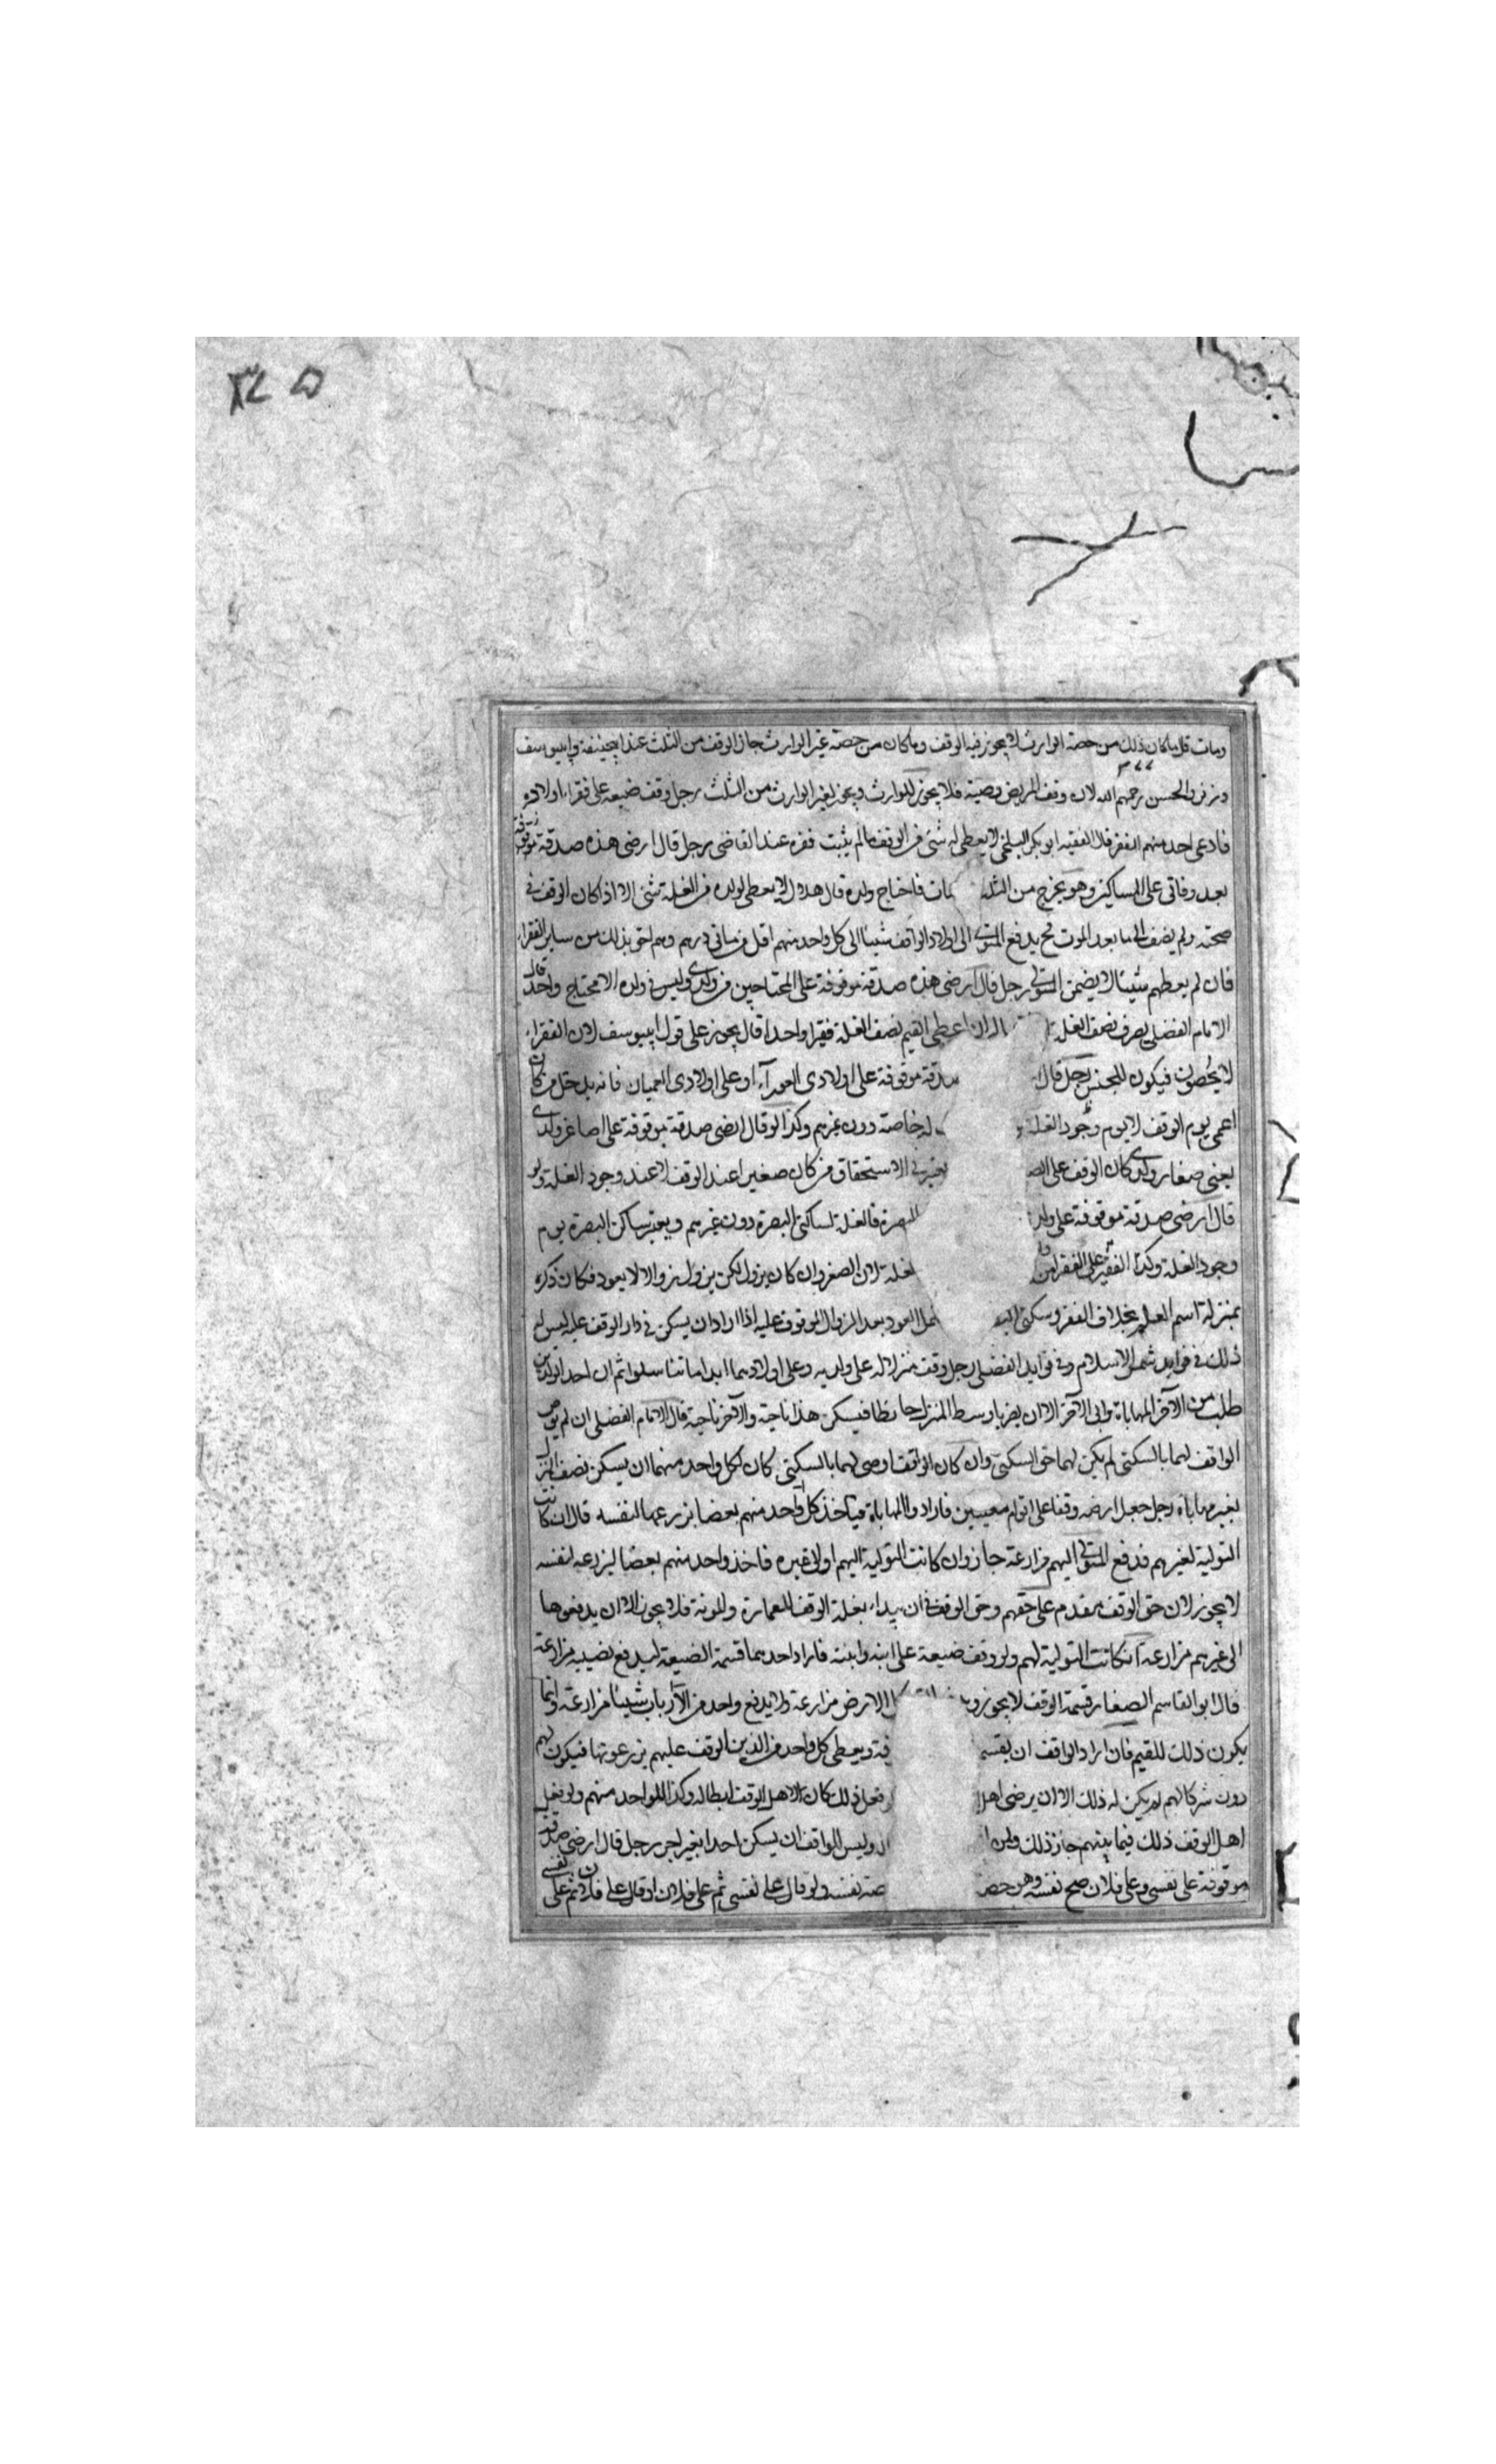 ومات قال ما كان ذلك من حصة الوارث لا يجوز فيه الوقف وما كان من حصة غير الوارث جاز الوقف من الثلث عند ابيحنيفة وابييوسف
وزفر والحسن رحمهم الله لان وقف المريض وصية فلا يجوز للوارث ويجوز لغير الوارث من الثلث رجل وقف ضيعة على فقراء اولاده
فادعى احد منهم الفقر قال الفقيه ابو بكر البلخي لا يعطى له شئ من الوقف مالم يثبت فقره عند القاضي رجل قال ارضى هذه صدقة موقوفة
بعد وفاتى على المساكين وهو يخرج من الثلث مات فاحتاج ولده قال هلال لا يعطى لولده من الغلة شئ الا اذا كان الوقف في
صحته ولم يضف الى ما بعد الموت ثم يدفع المتولى الى اولاد الواقف شيئا الى كل واحد منهم اقل من مائتى درهم وهم احق بذلك من ساير الفقراء
فان لم يعطهم شيئا لا يضمن المتولى رجل قال ارضى هذه صدقة موقوفة على المحتاجين من ولدى وليس في ولده الا محتاج واحد قال
الامام الفضلى يصرف نصف الغلة ان اعطى القيم نصف الغلة فقيرا واحدا قال يجوز على قول ابييوسف لان الفقراء
لا يحصون فيكون للجنس رجل قال صدقة موقوفة على اولادى العوراء او على اولادى العميان فانه يدخل من كان
اعمى يوم الوقف لا يوم وجود الغلة خاصة دون غيرهم وكذا لو قال ارضى صدقة موقوفة على اصاغر ولدى
يعنى صغار ولدى كان الوقف على يعتبر في الاستحقاق من كان صغيرا عند الوقف لا عند وجود الغلة ولو
قال ارضى صدقة موقوفة على ولد البصرة فالغلة لساكنى البصرة دون غيرهم ويعتبر ساكن البصرة يوم
وجود الغلة وكذا الفقير على الفقراء من ولد الغلة لان الصغر وان كان يزول لكن يزول زوالا لا يعود فكان ذكره
بمنزلة اسم العلم بخلاف الفقر وسكنى العود بعد الزوال الموقوف عليه اذا اراد ان يسكن في دار الوقف عليه ليس له
ذلك في فوايد شمس الاسلام وفي فوايد الفضلى رجل وقف منزلا له على ولديه وعلى اولادهما ابدا ما تناسلوا ثم ان احد الولدين
طلب من الآخر المهاباة وابى الآخر الا ان يضربا وسط المنزل حايطا فيسكن هذا ناحية والآخر ناحية قال الامام الفضلى ان لم يوص
الواقف لهما بالسكنى لم يكن لهما حق السكنى وان كان الواقف اوصى لهما بالسكنى كان لكل واحد منهما ان يسكن نصف المنزل
بغير مهاباة رجل جعل ارضه وقفا على اقوام معينين فارادوا المهاباة فياخذ كل واحد منهم بعضا يزرعها لنفسه قال ان كانت
التولية لغيرهم فدفع المتولى اليهم مزارعة جاز وان كانت التولية اليهم او لا غيره فاخذ واحد منهم بعضا ليزرعه لنفسه
لا يجوز لان حق الوقف مقدم على حقهم وحق الوقف في ان يبداء بغلة الوقف للعمارة والمونة فلا يجوز الا ان يدفعوها
الى غيرهم مزارعة ان كانت التولية لهم ولو وقف ضيعة على ابنه وابنته فاراد احدهما قسمة الضيعة ليدفع نصيبه مزارعة
قال ابو القاسم الصفار قسمة الوقف لا يجوز الارض مزارعة ولا يدفع واحد من الارباب شيئا مزارعة وانما
يكون ذلك للقيم فان اراد الواقف ان يقسم ويعطى كل واحد من الذين الوقف عليهم يزرعونها فيكون لهم
دون شركائهم لم يكن له ذلك الا ان يرضى اهل فعل ذلك كان لاهل الوقف ابطاله وكذا للواحد منهم ولو فعل
اهل الوقف ذلك فيما بينهم جاز ذلك ولمن وليس للواقف ان يسكن احدا بغير اجر رجل قال ارضى صدقة
موقوفة على نفسى وعلى فلان صح نفسه ولو قال على نفسى ثم على فلان او قال على فلان ثم على نفسى